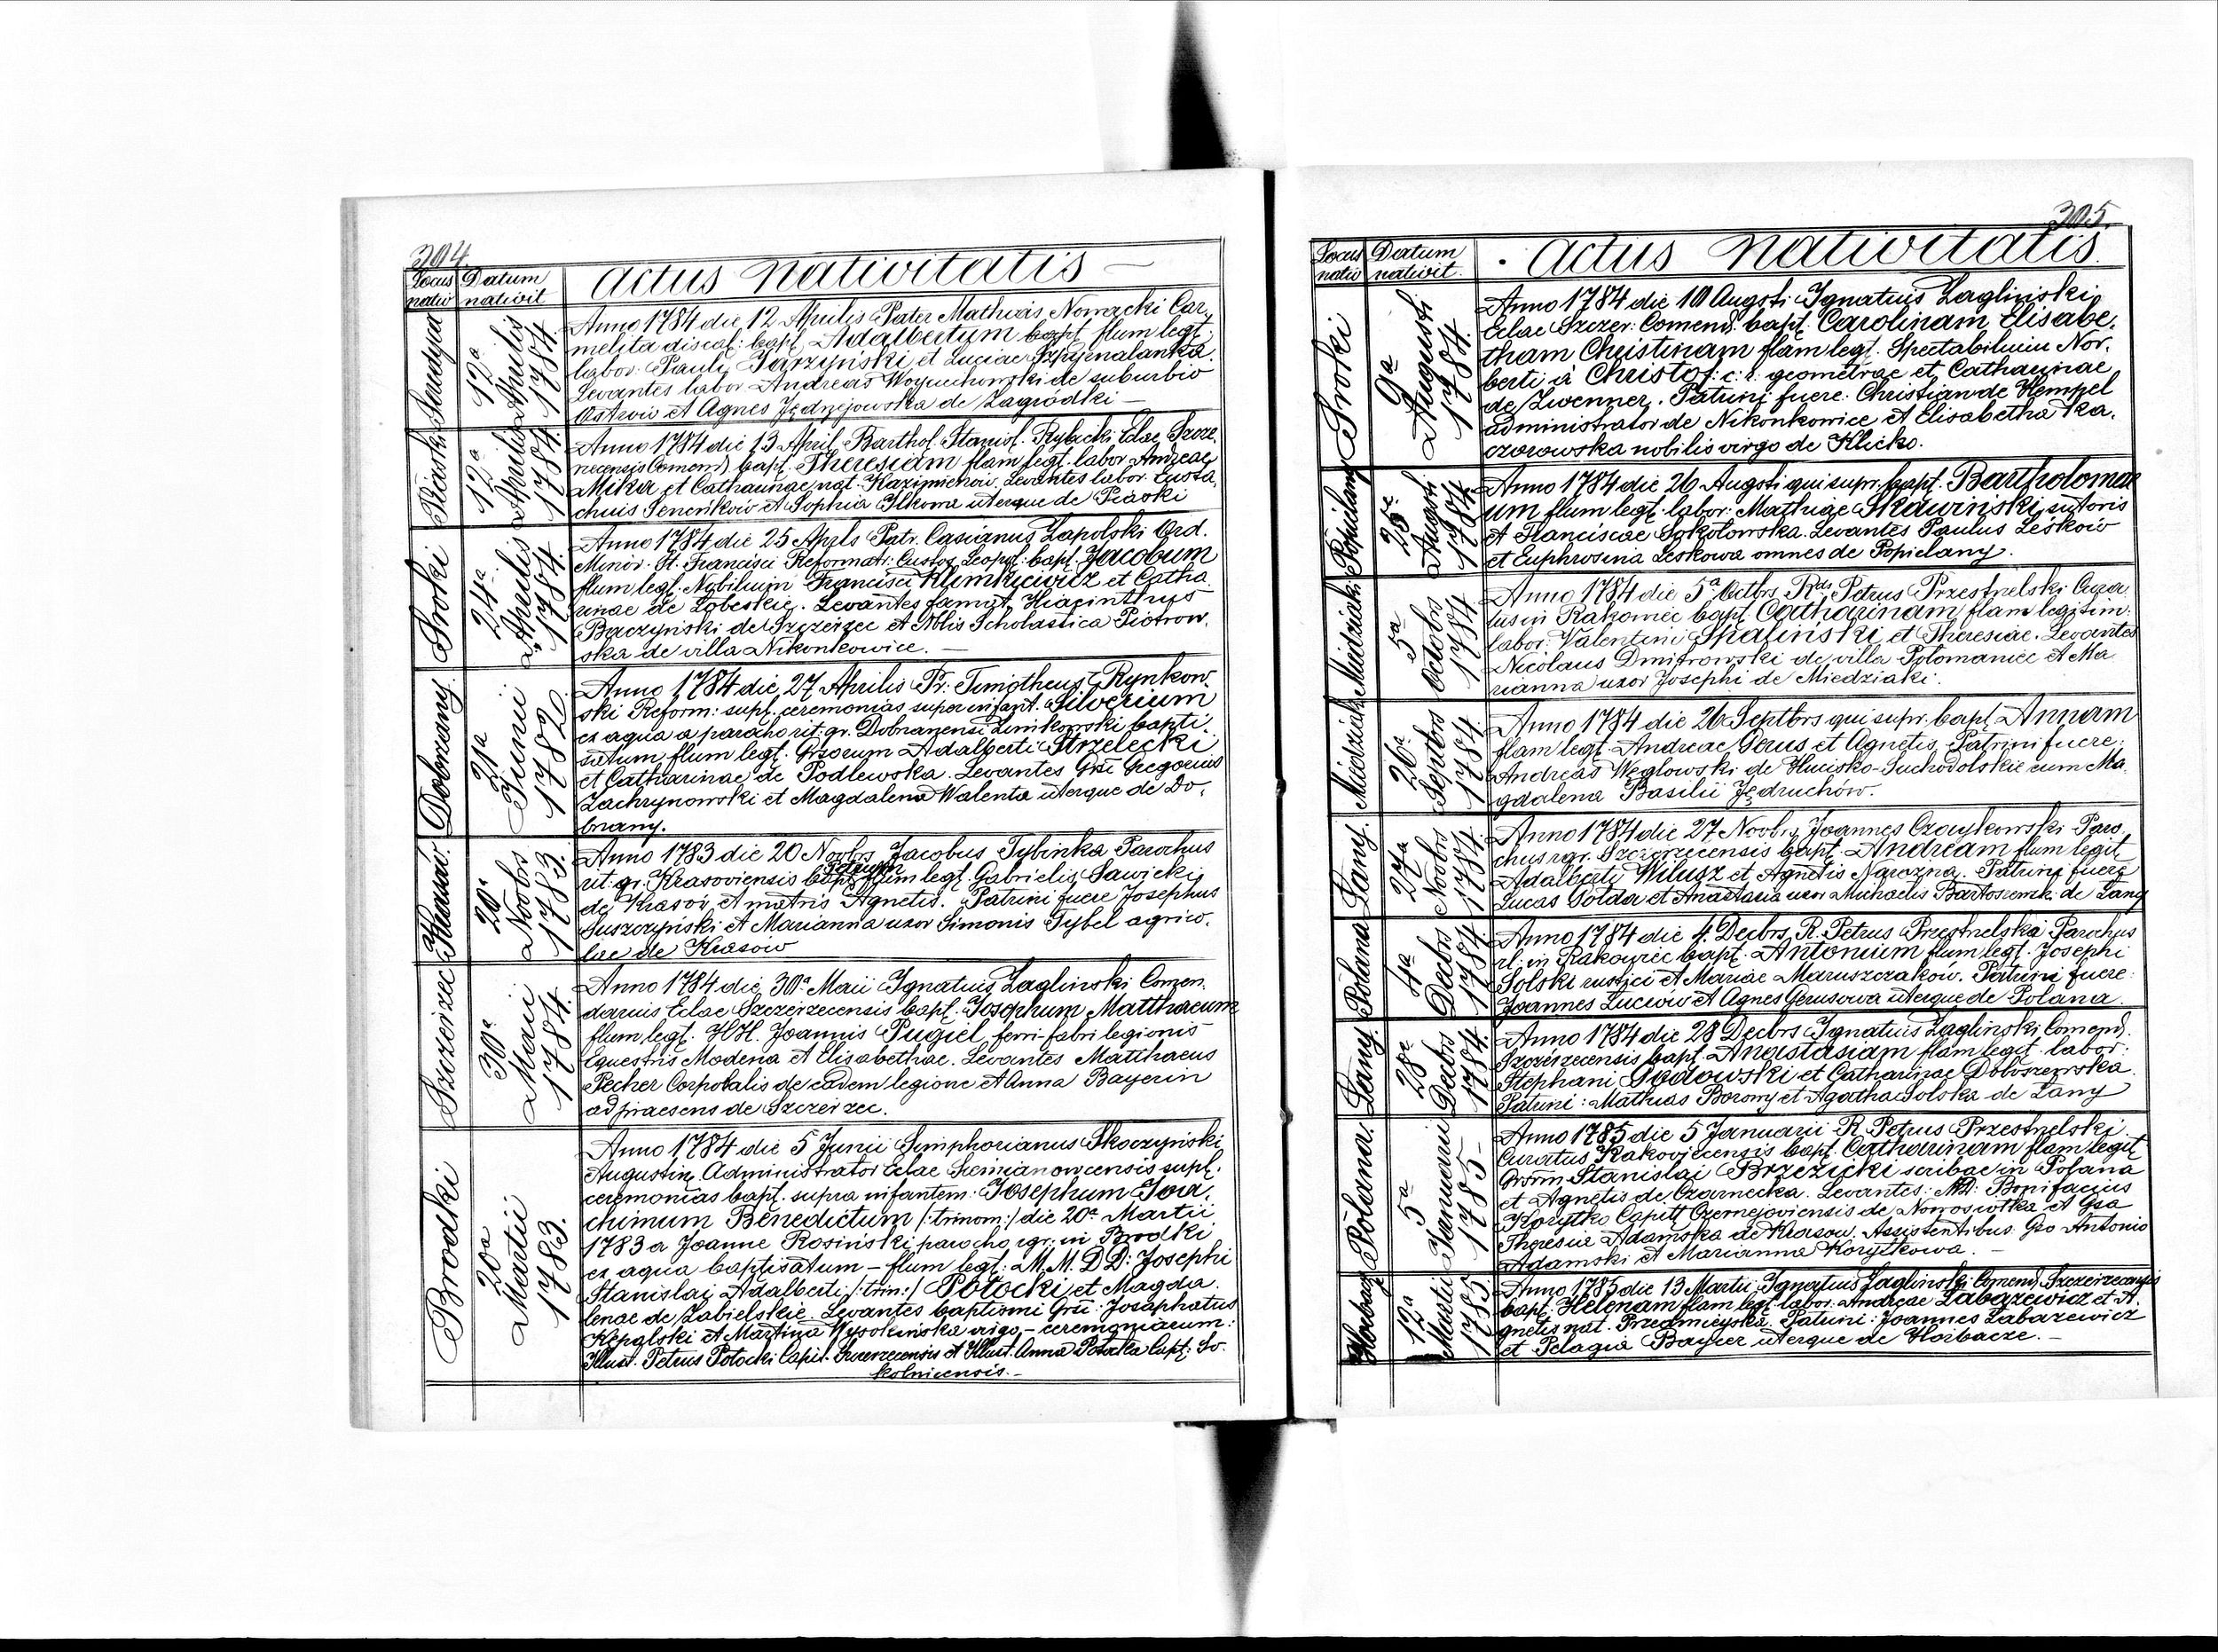 304.
Locus nativ
Datum nativit
Actus Nativitatis
12a Aprilis 1784.
Anno 1784 die 12 Aprilis Pater Mathias Nowacki Car,
melita discal: bapt Adalbertum bapt flum legt.
labor: Pauli Jarzyński et Luciae
Levantes labor Andreas Woyciechowski de suburbio
Ostrow et Agnes Jędrzejowska de Zagródki —
Piaski
12a Aprilis 1784.
Anno 1784 die 13 April. Barthol. Stanisl. Rybacki Eclae Szcze,
recensis Comend bapt. Theresiam flam legt. labor Andreae
Mika et Catharinae nat. Kazimierow. Levantes labor. Eusta,
chius Senenkow et Sophia Ilkowa uterque de Piaski
Sroki
24a Aprilis 1784.
Anno 1784 die 25 Aprls Patr. Casianus Zapolski Ord.
Minor. St. Francisci Reformati: Custos Leopol: bapt. Jacobum
flum legt. Nobilium Francisci Klimkiewicz et Catha
rinae de Łobeskie. Levantes famat. Hiacinthus
Baczyński de Szczerzec et Nblis Scholastica Piotrow.
ska de villa Nikonkowice. —
Dobrzany.
21a Junii 1782.
Anno 1784 die 27 Aprilis Pr. Timotheus Rynkow
ski Reform: supl. ceremonias super infant. Silverium
ex aqua a parocho rit. gr. Dobranensi Zinkowski bapti.
satum flum legt. Grsorum Adalberti Strzelecki
et Catharinae de Podlewska. Levantes Grsi Gregorius
Zachrynowski et Magdalena Walenta uterque de Do,
brany.
Krasów.
20a Novbrs 1783.
Anno 1783 die 20 Novbrs Jacobus Tybinka Parochus
Petrum
rit. gr. Krasoviensis bapt flum legt. Gabrielis Sawicki
de Krasov, et matris Agnetis. Patrini fuere Josephus
Suszczyński et Marianna uxor Simonis Tybel agrico.
lae de Krasow
Szczerzec
30a Maii 1784.
Anno 1784 die 30a Maii Ignatius Zagliński Comen.
darius Eclae Szczerzecensis bapt. Josephum Matthaeum
flum legt. HH. Joannis Pugiel ferri-fabri legionis
Equestris Modena et Elisabethae. Levantes Matthaeus
Pecher Corporalis de eadem legione et Anna Bayerin
ad praesens de Szczerzec.
Brodki
20a Martii 1783.
Anno 1784 die 5 Junii Symphorianus Skoczyński
Augustin. Administrator Eclae Siemianowcensis supl.
ceremonias bapt. supra infantem: Josephum Joa,
chimum Benedictum /:trinom:/ die 20a Martii
1783 a Joanne Rosiński parocho rgr: in Brodki
ex aqua baptisatum — flum legt: M.M. DD: Josephi
Stanislai Adalberti /:trin:/ Potocki et Magda.
lenae de Zabielskie. Levantes baptismi Grsi: Josaphatus
et Martina Wysokińska virgo — ceremoniarum:
Illust. Petrus Potocki Capit. et Illust. Anna Potocka Capt. So.
kolnicensis. —
305.
Locus nativ
Datum nativit.
Actus Nativitatis.
Sroki
9a Augusti 1784.
Anno 1784 die 10 Augsti Ignatius Zagliński
Eclae Szczer: Comend. bapt. Carolinam Elisabe,
tham Christinam flam legt. Spectabilium Nor,
berti à Christof: c: r. geometrae et Catharinae
de Zwenner. Patrini fuere: Christian de Hempel
administrator de Nikonkowice et Elisabetha Ka,
czorowska nobilis virgo de Klicko.
Popielany
25a Augsti 1784.
Anno 1784 die 26 Augsti qui supr. bapt. Bartholomae
um flum legt. labor. Mathiae Skawiński sutoris
et Franciscae Sokołowska. Levantes Paulus Leśkow
et Euphrosina Leskowa omnes de Popielany.
Miedziaki
5a Octobrs 1784
Anno 1784 die 5a Octbrs Rds Petrus Przestrzelski Cura
tus in Rakowiec bapt. Catharinam flam legitim.
labor. Valentini Skaliński et Theresiae. Levantes
Nicolaus Dmitrowski de villa Polomaniec et Ma
rianna uxor Josephi de Miedziaki.
Miedziaki
26a Septbrs 1784.
Anno 1784 die 26 Septbrs qui supr. bapt. Annam
flam legt. Andreae Gerus et Agnetis. Patrini fuere:
Andreas Węglowski de Hucisko-Suchodolskie cum Ma
gdalena Basilii Jędruchów.
Łany.
27a Novbrs 1784.
Anno 1784 die 27 Novbrs Joannes Czaykowski Paro
chus rgr. Szczerzecensis bapt. Andream flum legit
Adalberti Wilusz et Agnetis Narozna. Patrini fuere
Lucas Gołda et Anastasia uxor Michaelis Bartoszewsk. de Łany
Polana
4a Decbrs 1784.
Anno 1784 die 4. Decbrs R. Petrus Przestrzelski Parochus
rl: in Rakowiec bapt. Antonium flum legt. Josephi
Solski rustici et Mariae Maruszczaków. Patrini fuere:
Joannes Luciow et Agnes Gerusowa uterque de Polana.
Łany.
28a Decbrs 1784.
Anno 1784 die 28 Decbrs Ignatius Zagliński Comend.
Szczerzecensis bapt. Anastasiam flam legit. labor:
Stephani Sadowski et Catharinae Doboszewska.
Patrini: Mathias Borowy et Agatha Solska de Łany
Polana.
5a Januarii 1785 —
Anno 1785 die 5 Januarii R. Petrus Przestrzelski
Curatus Rakoviecensis bapt. Catharinam flam legit
Grsrm Stanislai Brzezicki scribae in Polana
et Agnetis de Czarnecka. Levantes: MD: Bonifacius
Korytko Capitt Czernejoviensis de Nowosiołka et Gsa
Theresia Adamska de Krasow. Assistentibus Gso Antonio
Adamski et Marianna Korytkowa. —
Horbacze
12a Martii 1785
Anno 1785 die 13 Martii Ignatius Zagliński Comend. Szczerzecensis
bapt. Helenam flam legt. labor. Andreae Łabazewicz et A.
gnetis nat. Przedmieyska. Patrini: Joannes Łabazewicz
et Pelagia Baycer uterque de Horbacze. —